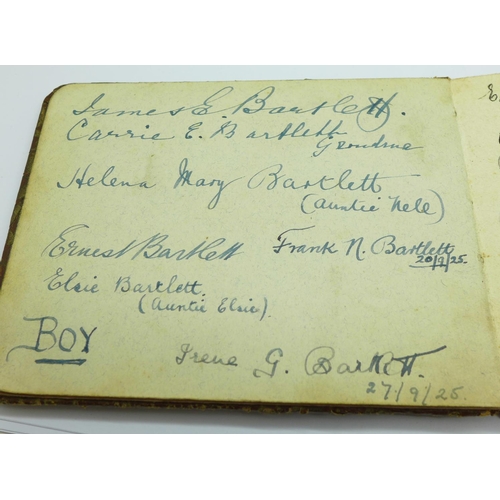 James E. Bartlett.
Carrie E. Bartlett
Helena Mary Bartlett
(Auntie Nele)
Ernest Bartlett
Frank N. Bartlett
20/9/25.
Elsie Bartlett.
(Auntie Elsie).
BOY
Irene G. Bartlett.
27/9/25.